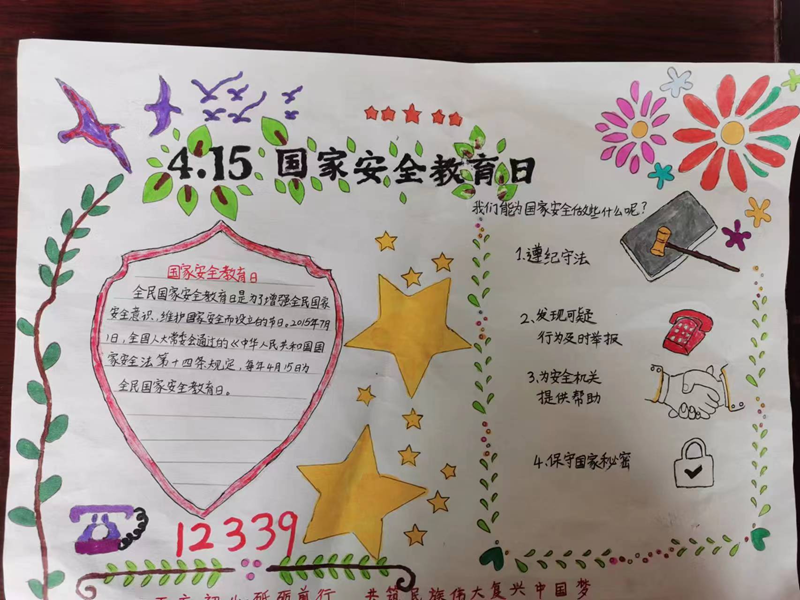 4.15 国家安全教育日
国家安全教育日
全民国家安全教育日是为了增强全民国家
安全意识，维护国家安全而设立的节日。2015年7月
1日，全国人大常委会通过的《中华人民共和国国
家安全法第十四条规定，每年4月15日为
全民国家安全教育日。
12339
我们能为国家安全做些什么呢？
1.遵纪守法
2.发现可疑
行为及时举报
3.为安全机关
提供帮助
4.保守国家秘密
砥砺前行 共筑民族伟大复兴中国梦